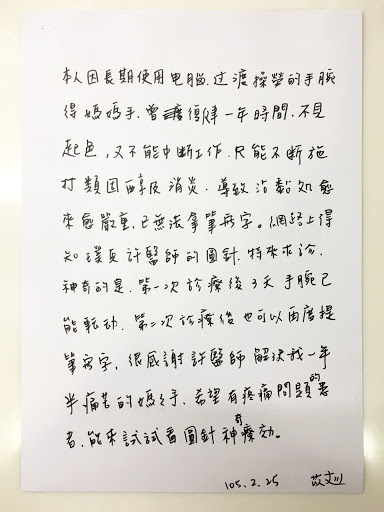 本人因長期使用电腦.过渡操勞的手腕
得媽媽手.曾復健一年時間.不見
起色,又不能中断工作.只能不断施
打類固醇及消炎.導致沾黏処愈
來愈嚴重,已無法拿筆写字。網路上得
知璞真許醫師的圓針.特來求診.
神奇的是.第一次診療後3天手腕已
能転动.第二次診療後也可以再度提
筆写字,很感謝許醫師解決我一年
半痛苦的媽媽手.希望有疼痛問題的患
者.能來試試看圓針神奇療効。
105.2.25